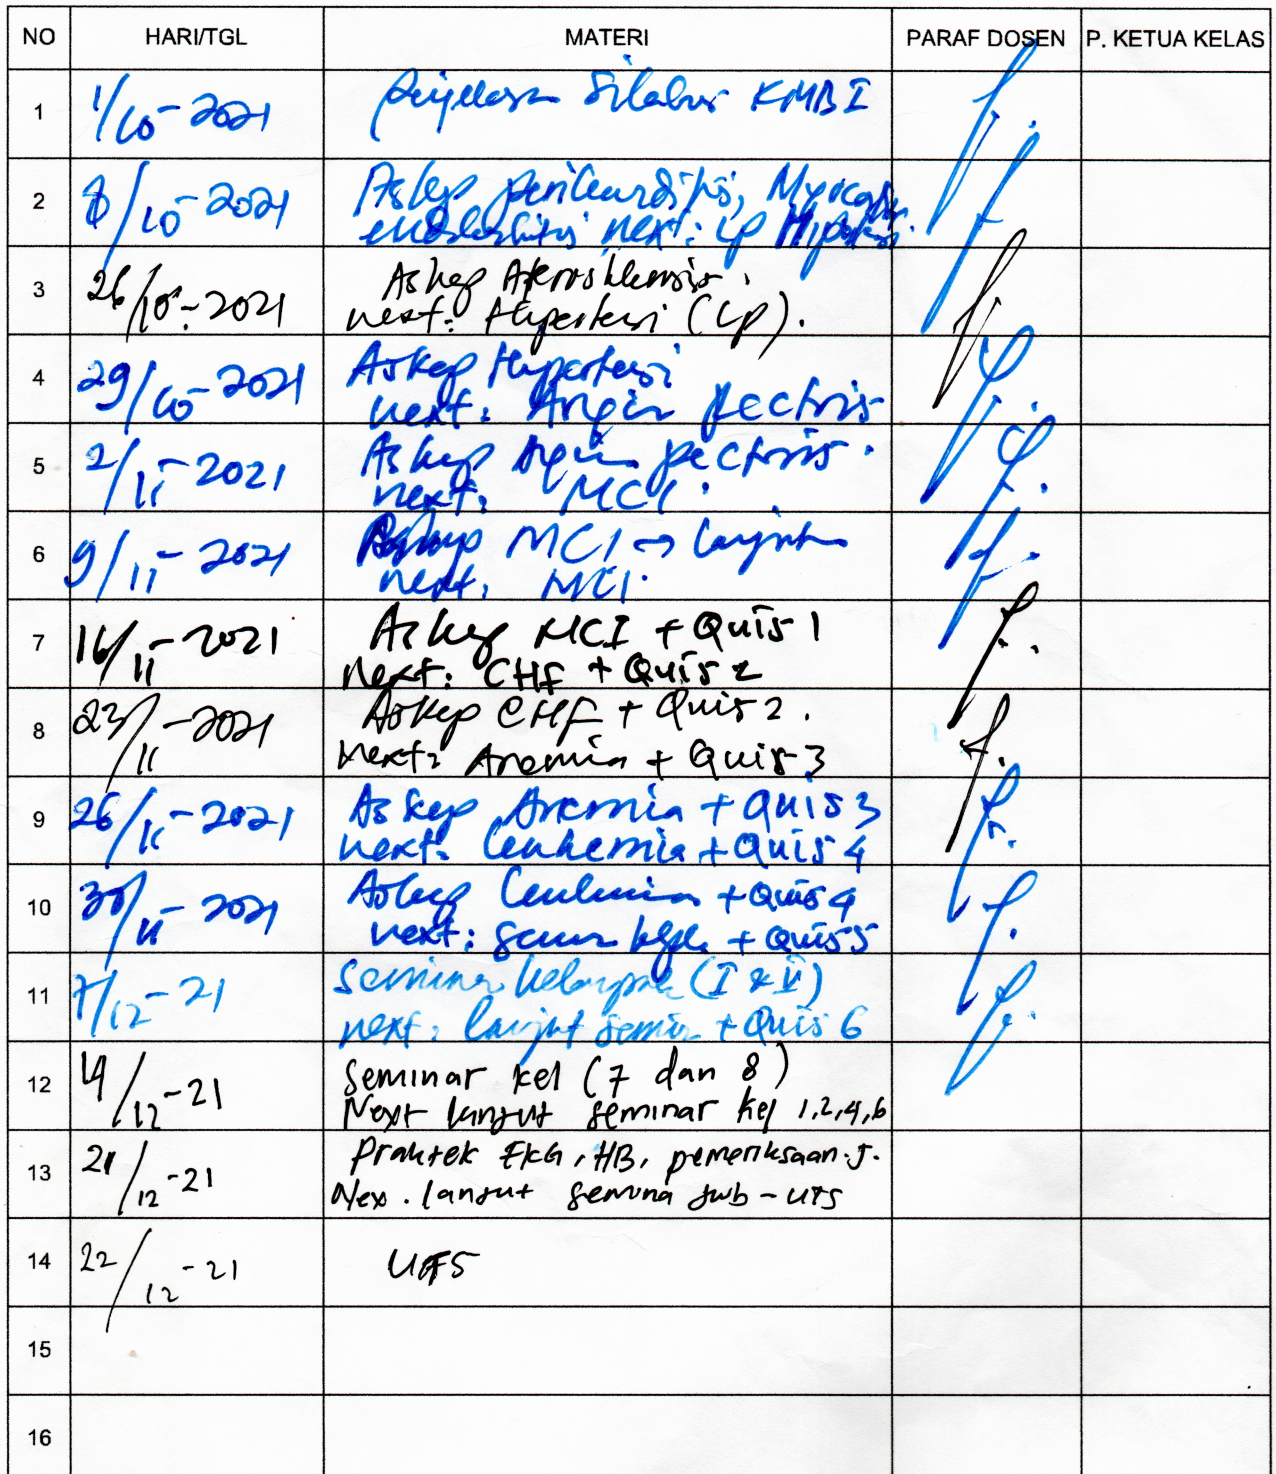 NO HARI/TGL MATERI PARAF DOSEN P. KETUA KELAS
1 1/10-2021 Silabus KMB I
2 8/10-2021 Askep perikarditis, Myocard
next: LP Hipertensi
3 26/10-2021 Askep Aterosklerosis.
next: Hipertensi (Lp).
4 29/10-2021 Askep Hypertensi
next: Angin pectoris
5 2/11-2021 Askep Angin pectoris.
next: MCI.
6 9/11-2021 Askep MCI → lanjutan
next: MCI.
7 16/11-2021 Askep MCI + Quis 1
next: CHF + Quis 2
8 23/11-2021 Askep CHF + Quis 2.
next: Anemia + Quis 3
9 26/11-2021 Askep Anemia + Quis 3
next: Leukemia + Quis 4
10 30/11-2021 Askep Leukemia + Quis 4
next: + Quis 5
11 7/12-21 Seminar kelompok (I & V)
next: lanjut semin + Quis 6
12 14/12-21 Seminar kel (7 dan 8)
Next lanjut seminar kel 1,2,4,6
13 21/12-21 Praktek EKG, HB, pemeriksaan.J.
Nex. lanjut semina sub-UTS
14 22/12-21 UTS
15
16